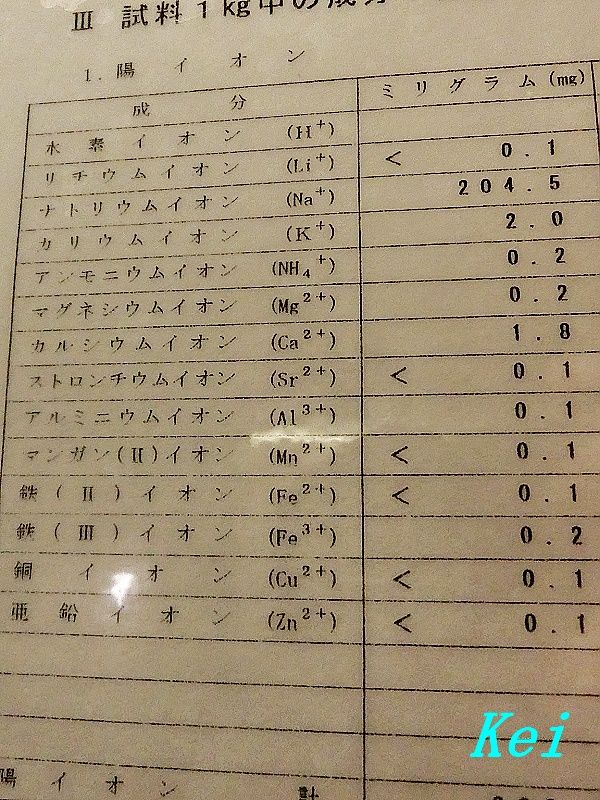 Ⅲ 試料1kg中の成分
1. 陽イオン
成分 ミリグラム(mg)
水素イオン (H+)
リチウムイオン (Li+) < 0.1
ナトリウムイオン (Na+) 204.5
カリウムイオン (K+) 2.0
アンモニウムイオン (NH4+) 0.2
マグネシウムイオン (Mg2+) 0.2
カルシウムイオン (Ca2+) 1.8
ストロンチウムイオン (Sr2+) < 0.1
アルミニウムイオン (Al3+) 0.1
マンガン(Ⅱ)イオン (Mn2+) < 0.1
鉄(Ⅱ)イオン (Fe2+) < 0.1
鉄(Ⅲ)イオン (Fe3+) 0.2
銅イオン (Cu2+) < 0.1
亜鉛イオン (Zn2+) < 0.1
陽イオン 計
Kei